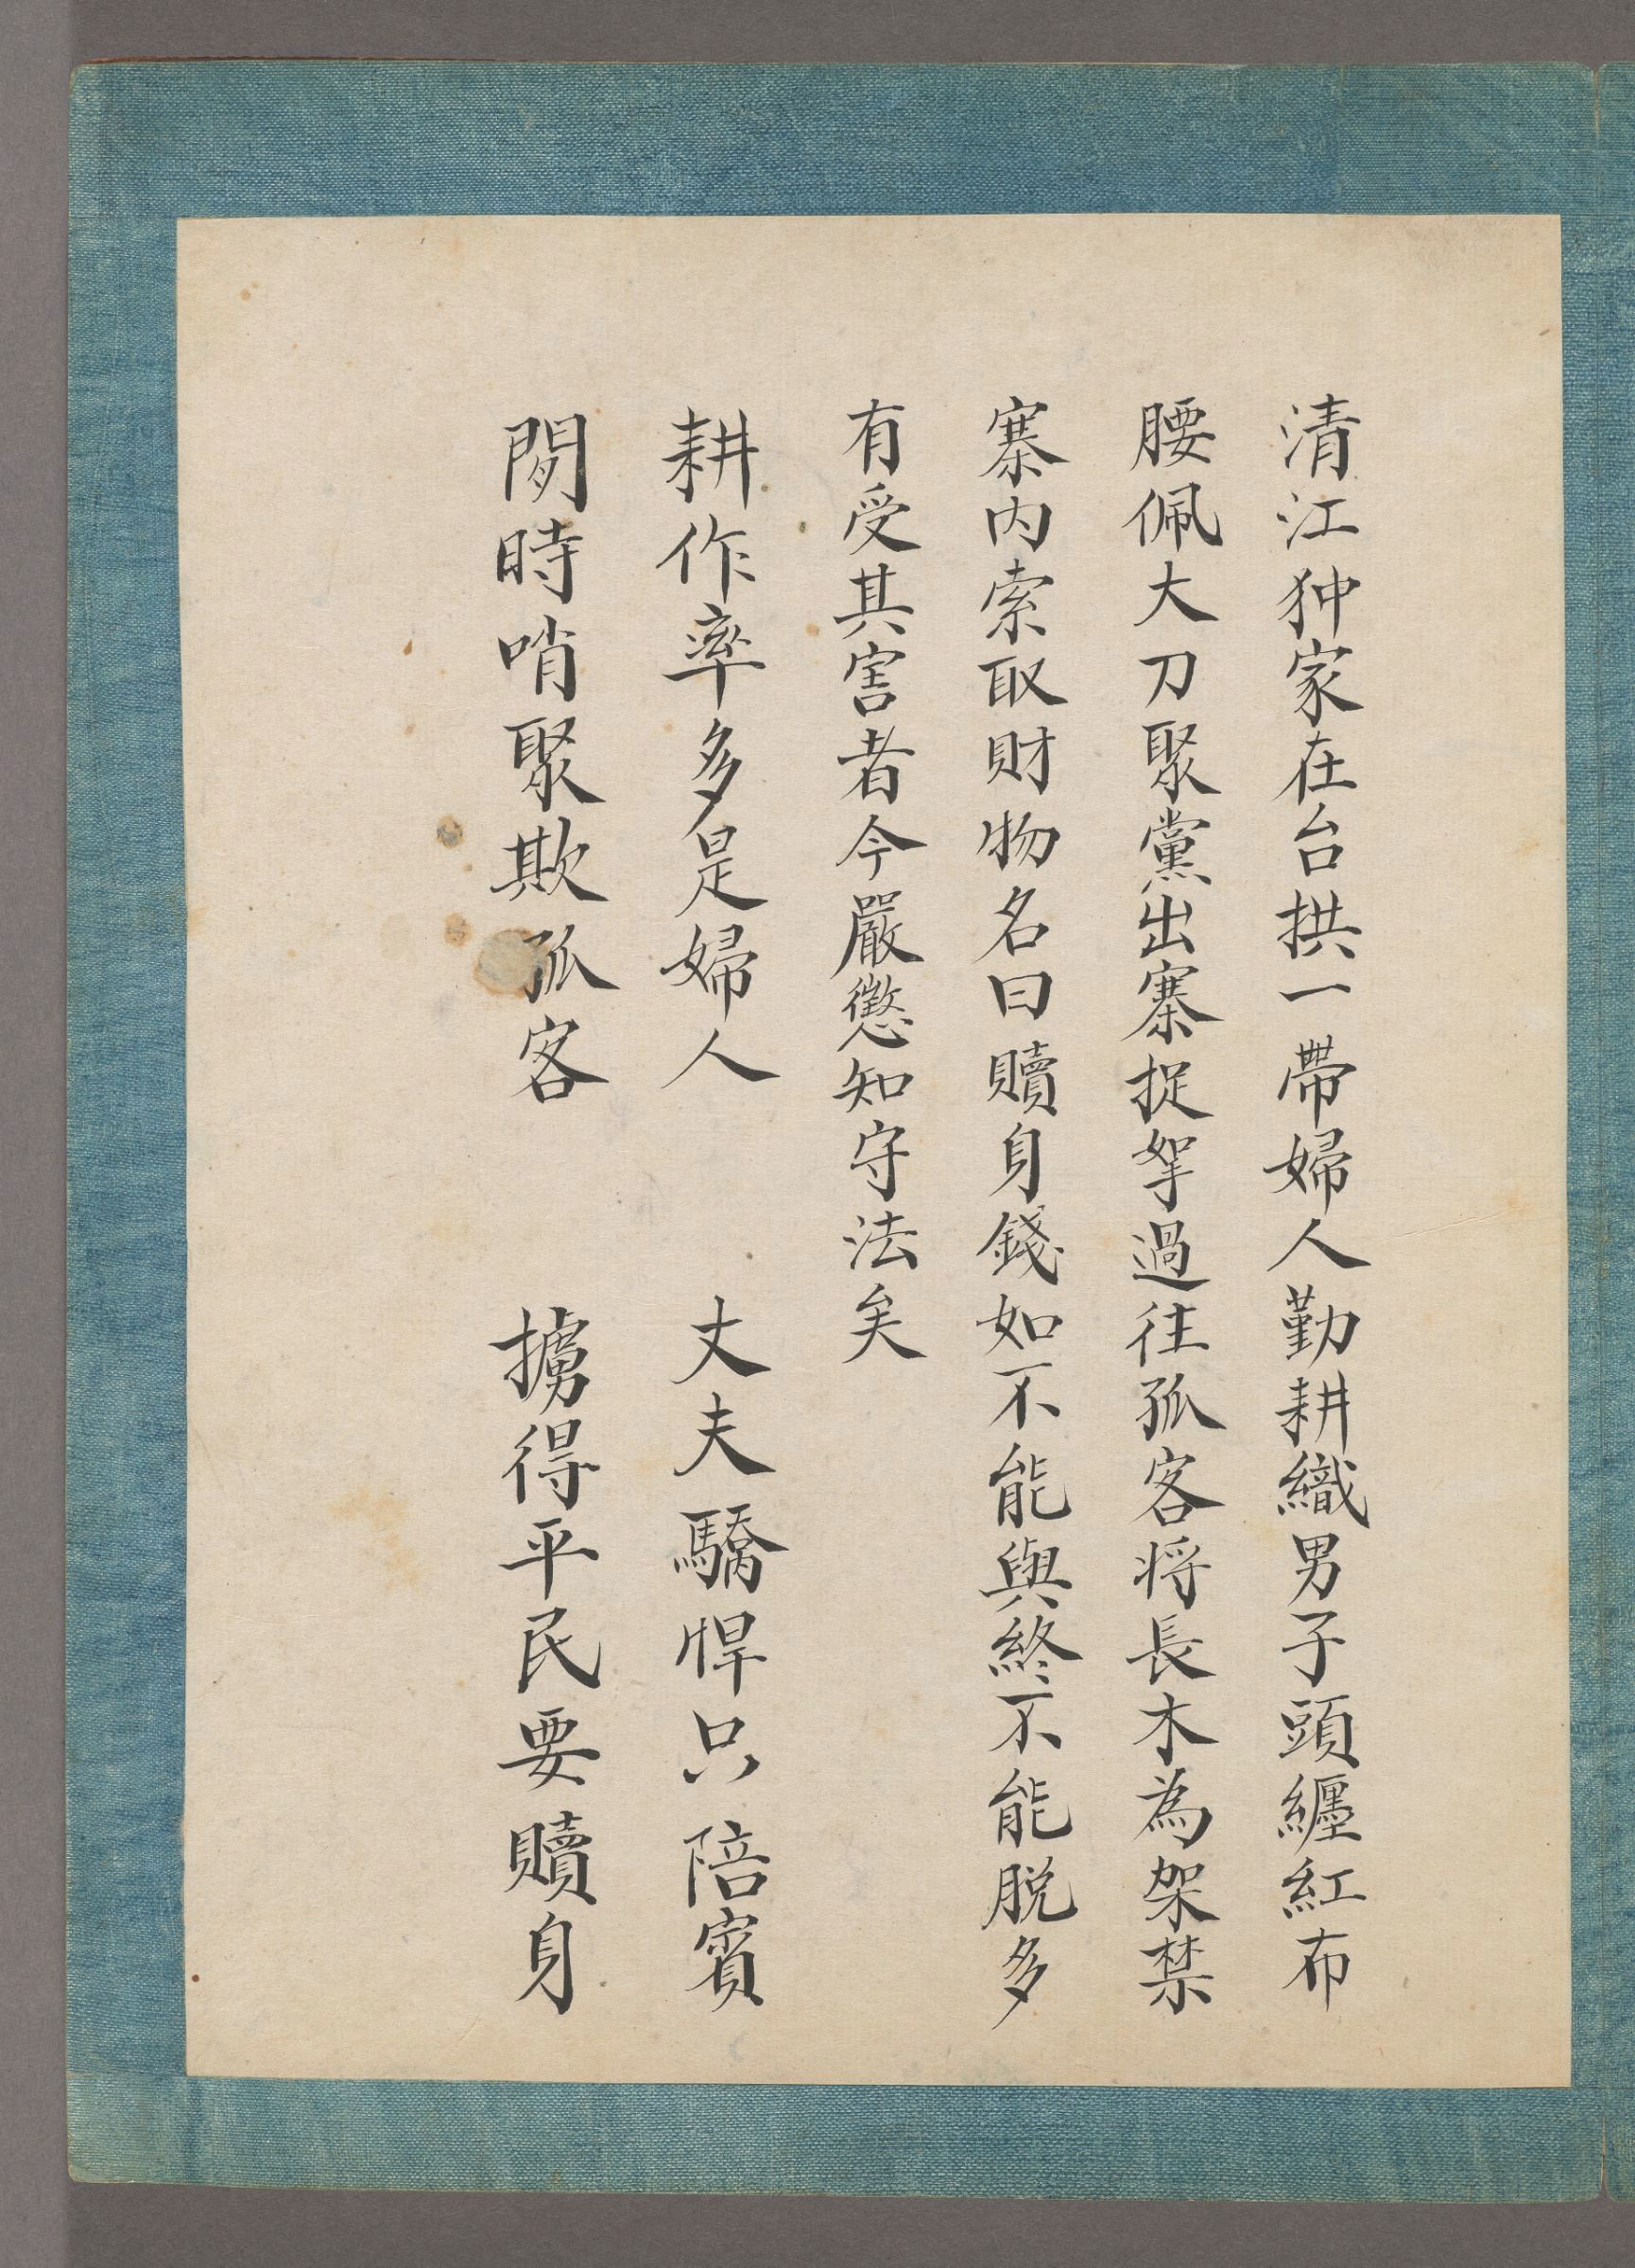 清江狆家在台拱一帶婦人勤耕織男子頭纏紅布
腰佩大刀聚黨出寨捉拏過往孤客将長木為架禁
寨内索取財物名曰贖身錢如不能與終不能脱多
有受其害者今嚴懲知守法矣
耕作率多是婦人 丈夫驕悍只陪賓
閒時哨聚欺孤客 擄得平民要贖身